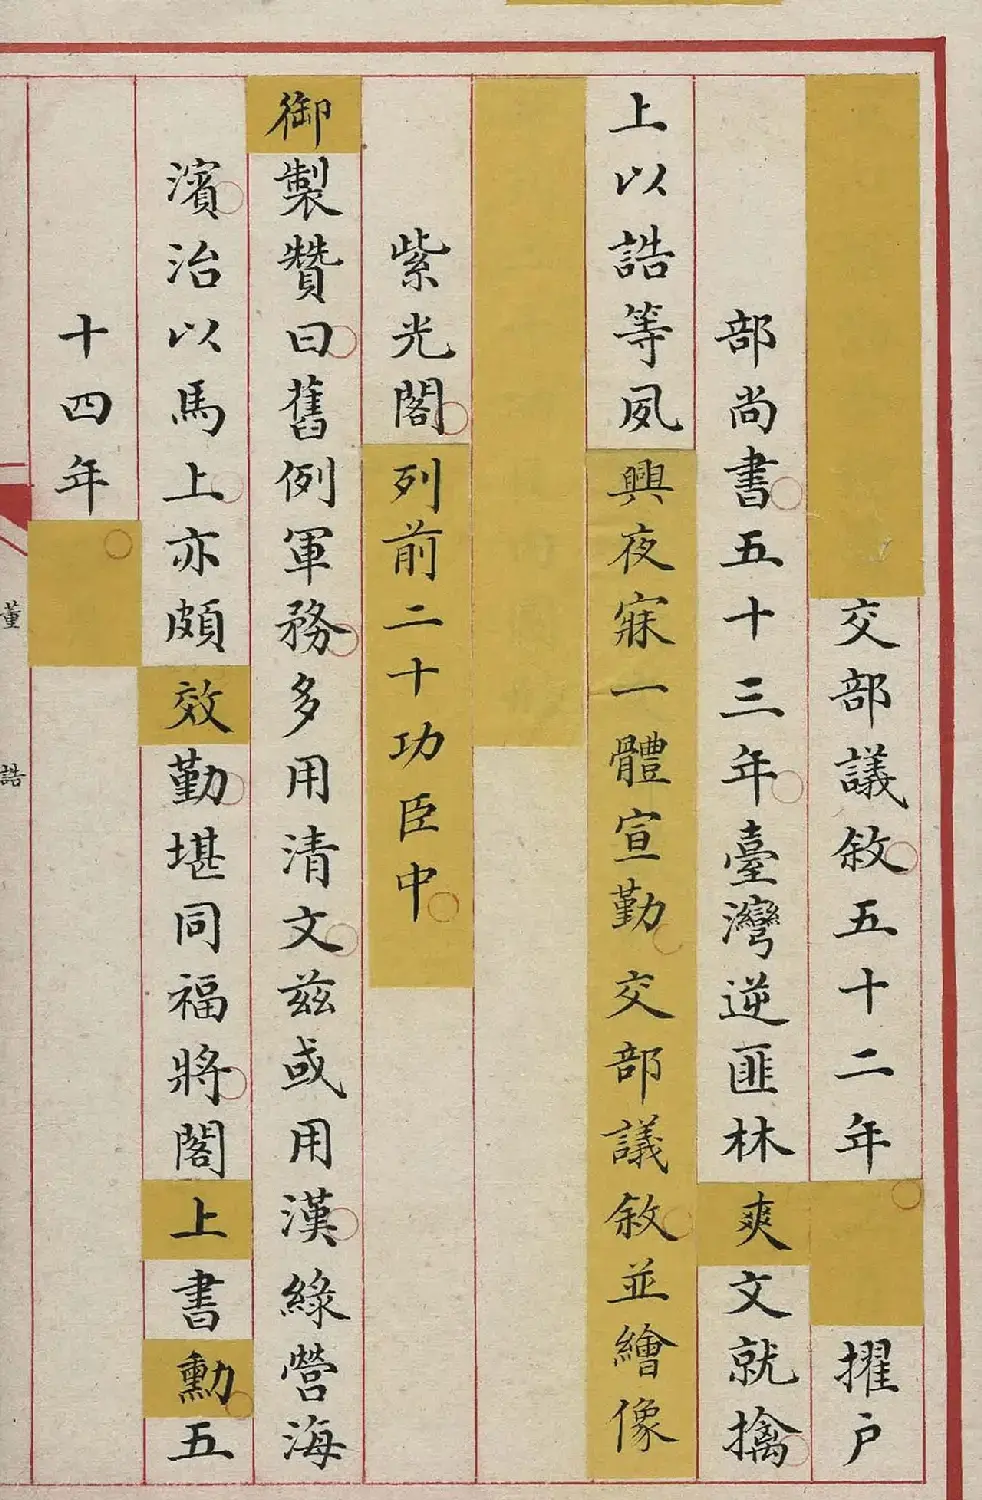 交部議敘五十二年擢戶
部尚書五十三年臺灣逆匪林爽文就擒
上以誥等夙興夜寐一體宣勤交部議敘並繪像
紫光閣列前二十功臣中
御製贊曰舊例軍務多用清文茲或用漢綠營海
濱治以馬上亦頗效勤堪同福將閣上書勳五
十四年
董誥